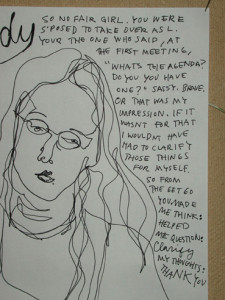 dy
SO NO FAIR GIRL. YOU WERE
S'POSED TO TAKE OVER NSL.
YOUR THE ONE WHO SAID, AT
THE FIRST MEETING,
"WHATS THE AGENDA?
DO YOU YOU HAVE
ONE?" SAISY. BRAVE.
OR THAT WAS MY
IMPRESSION. IF IT
WASNT FOR THAT
I WOULDNT HAVE
HAD TO CLARIFY
THOSE THINGS
FOR MYSELF.
SO FROM
THE GET GO
YOU MADE
ME THINK.
HELPED
ME QUESTION.
Clarify
MY THOUGHTS.
THANK YOU